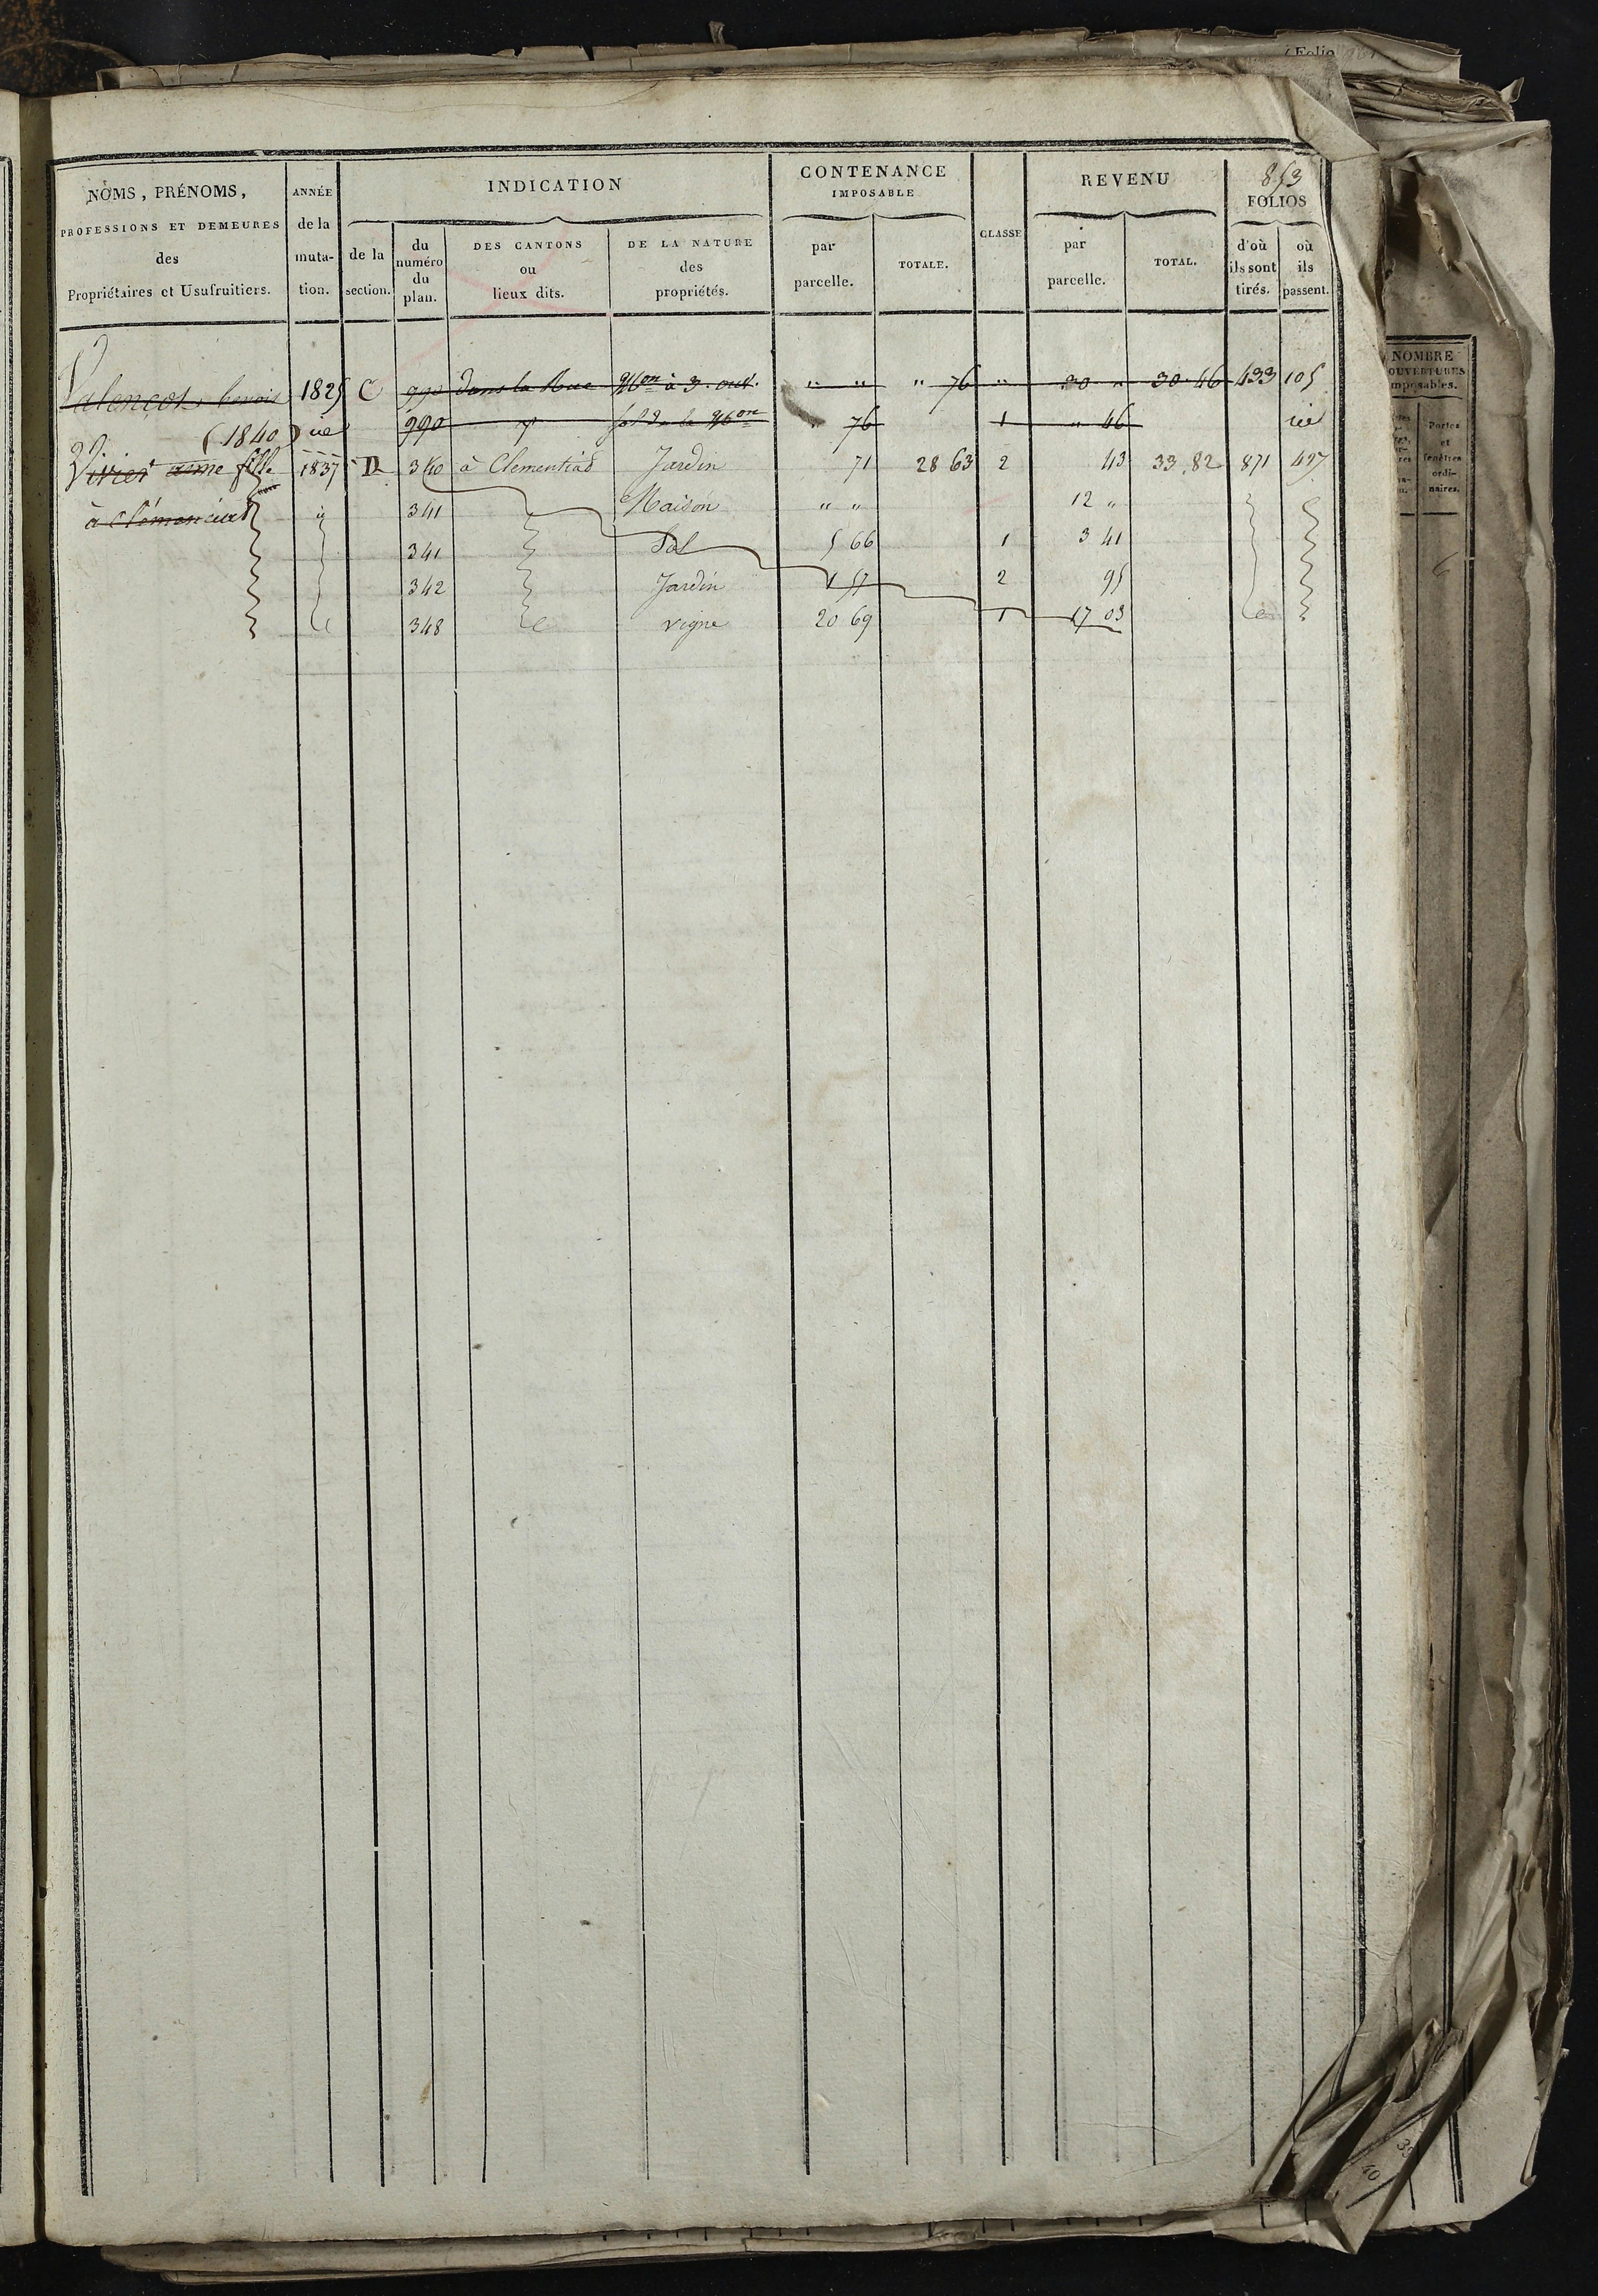 853
NOMS, PRÉNOMS,
PROFESSIONS ET DEMEURES
des
Propriétaires et Usufruitiers.
ANNÉE
de la
muta-
tion.
INDICATION
de la
section.
du
numéro
du
plan.
DES CANTONS
ou
lieux dits.
DE LA NATURE
des
propriétés.
CONTENANCE
IMPOSABLE
par
parcelle.
TOTALE.
CLASSE
REVENU
par
parcelle.
TOTAL.
FOLIOS
d'où
ils sont
tirés.
où
ils
passent.
1825 C 990 dans la Rue à 3. out. " " " 76 " 30 " 30 46 433 105
(1840) 990 76 1 " 46
Vivier fille 1837 D 340 à Clementias Jardin 71 28 63 2 43 33 82 871 497
341 Maison " " 12 "
341 Sol 5 66 1 3 41
342 Jardin 1 57 2 95
348 vigne 20 69 1 17 03
Folio
NOMBRE
OUVERTURES
mposables.
Portes
et
fenêtres
ordi-
naires.
6
39
40